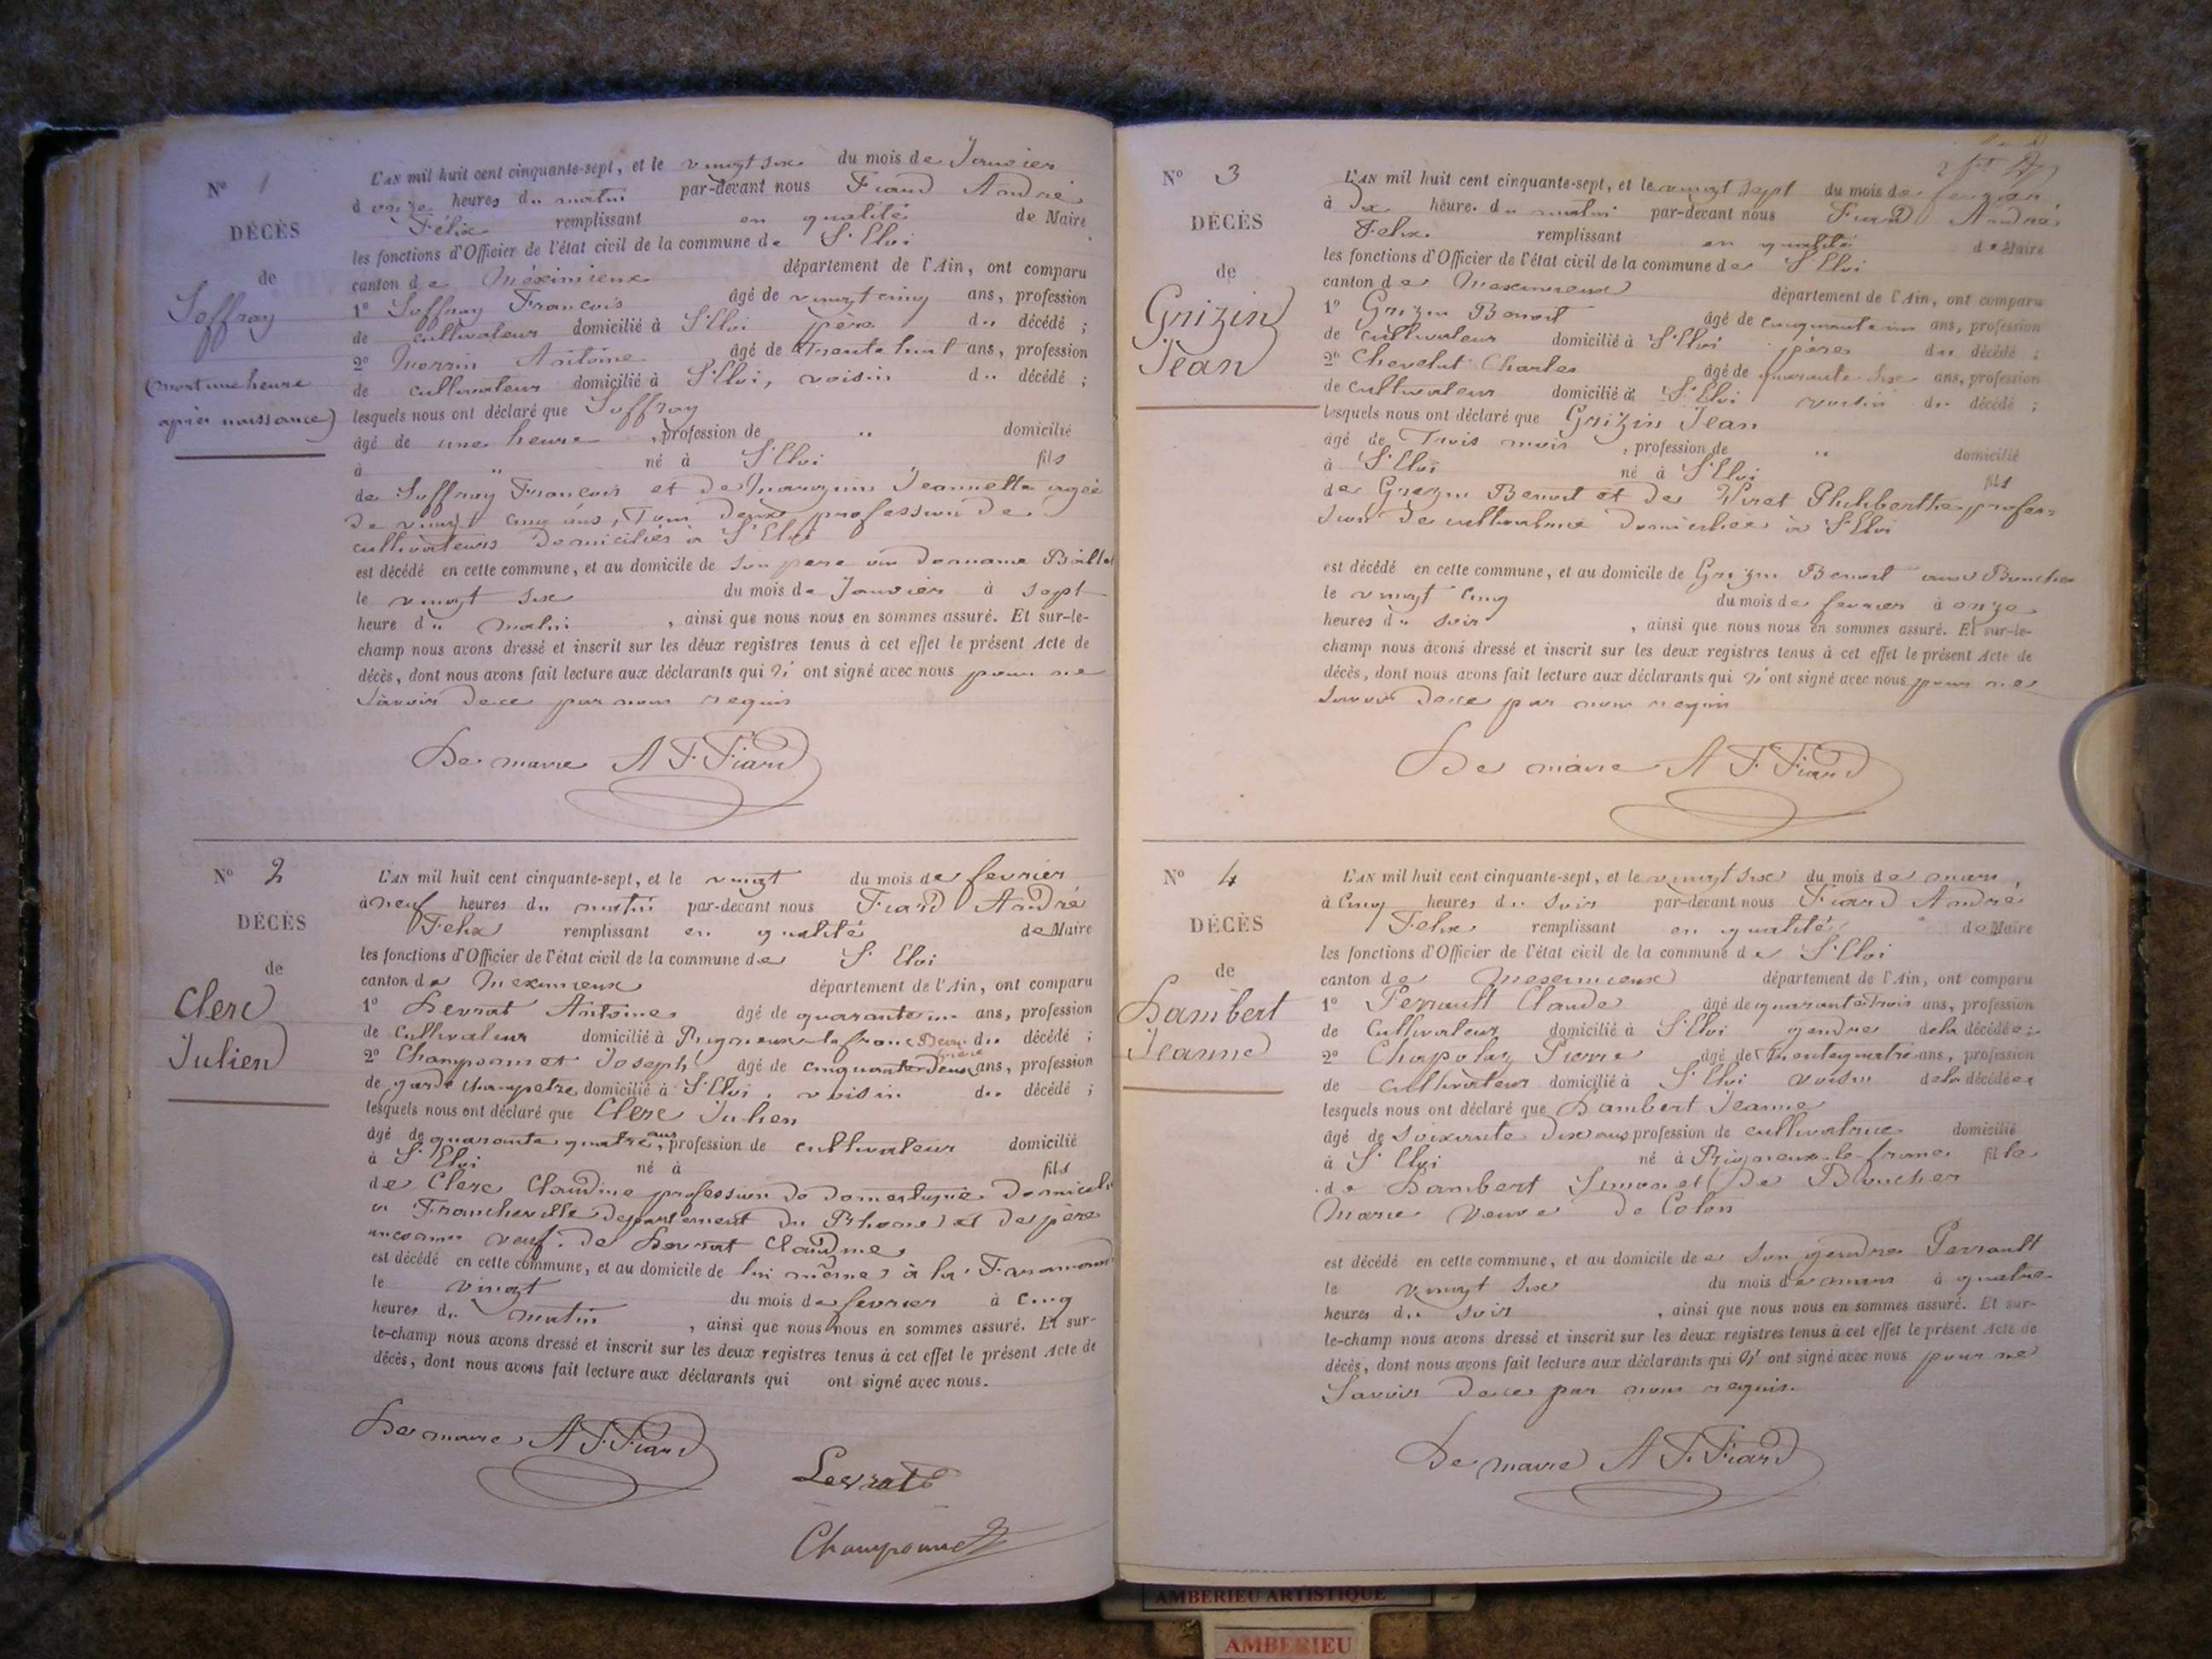 N° 1
DÉCÈS
de
Joffray
(mort une heure
après naissance)
L'AN mil huit cent cinquante-sept, et le vingt six du mois de Janvier
à onze heures du matin par-devant nous Fiard André
Félix remplissant en qualité de Maire
les fonctions d'Officier de l'état civil de la commune de St Eloi
canton de Méximieux département de l'Ain, ont comparu
1° Joffray François âgé de vingt cinq ans, profession
de cultivateur domicilié à St Eloi père du décédé ;
2° Morrin Antoine âgé de Trente huit ans, profession
de cultivateur domicilié à St Eloi, voisin du décédé ;
lesquels nous ont déclaré que Joffray
âgé de une heure , profession de " domicilié
à " né à St Eloi fils
de Joffray François et de Jeannette agée
de vingt cinq ans, Tous deux profession de
cultivateurs domiciliés à St Eloi
est décédé en cette commune, et au domicile de son père au domaine
le vingt six du mois de Janvier à sept
heure du matin , ainsi que nous nous en sommes assuré. Et sur-le-
champ nous avons dressé et inscrit sur les deux registres tenus à cet effet le présent Acte de
décès, dont nous avons fait lecture aux déclarants qui n' ont signé avec nous pour ne
savoir de ce par nous requis
Le maire A F Fiard
N° 2
DÉCÈS
de
Clerc
Julien
L'AN mil huit cent cinquante-sept, et le vingt du mois de fevrier
à neuf heures du matin par-devant nous Fiard André
Felix remplissant en qualité de Maire
les fonctions d'Officier de l'état civil de la commune de St Eloi
canton de Meximieux département de l'Ain, ont comparu
1° Levrat Antoine âgé de quarante un ans, profession
de cultivateur domicilié à Rignieux le franc Beau frère du décédé ;
2° Champonnet Joseph âgé de cinquante deux ans, profession
de garde champetre domicilié à St Eloi, voisin du décédé ;
lesquels nous ont déclaré que Clerc Julien
âgé de quarante quatre ans, profession de cultivateur domicilié
à St Eloi né à fils
de Clerc Claudine profession de domestique
à Francheville departement du Rhone et de père
inconnu veuf de Levrat Claudine
est décédé en cette commune, et au domicile de lui même à la
le vingt du mois de fevrier à cinq
heures du matin , ainsi que nous nous en sommes assuré. Et sur-
le-champ nous avons dressé et inscrit sur les deux registres tenus à cet effet le présent Acte de
décès, dont nous avons fait lecture aux déclarants qui ont signé avec nous.
Le maire A F Fiard
Levrat
Champonnet
N° 3
DÉCÈS
de
Grizin
Jean
L'AN mil huit cent cinquante-sept, et le vingt sept du mois de fevrier
à dix heure du matin par-devant nous Fiard André
Felix remplissant en qualité de Maire
les fonctions d'Officier de l'état civil de la commune de St Eloi
canton de Meximieux département de l'Ain, ont comparu
1° Grizin Benoit âgé de cinquante un ans, profession
de cultivateur domicilié à St Eloi père du décédé ;
2° Chevelut Charles âgé de quarante six ans, profession
de cultivateur domicilié à St Eloi voisin du décédé ;
lesquels nous ont déclaré que Grizin Jean
âgé de Trois mois , profession de " domicilié
à St Eloi né à St Eloi fils
de Grizin Benoit et de Philiberthe profes=
sion de cultivatrice domiciliée à St Eloi
est décédé en cette commune, et au domicile de Grizin Benoit
le vingt cinq du mois de fevrier à onze
heures du soir , ainsi que nous nous en sommes assuré. Et sur-le-
champ nous avons dressé et inscrit sur les deux registres tenus à cet effet le présent Acte de
décès, dont nous avons fait lecture aux déclarants qui n' ont signé avec nous pour ne
savoir de ce par nous requis
Le maire A F Fiard
N° 4
DÉCÈS
de
Lambert
Jeanne
L'AN mil huit cent cinquante-sept, et le vingt six du mois de mars,
à cinq heures du soir par-devant nous Fiard André
Felix remplissant en qualité de Maire
les fonctions d'Officier de l'état civil de la commune de St Eloi
canton de Meximieux département de l'Ain, ont comparu
1° Perrault Claude âgé de quarante trois ans, profession
de cultivateur domicilié à St Eloi gendre de la décédée ;
2° Chapolay Pierre âgé de trente quatre ans, profession
de cultivateur domicilié à St Eloi voisin de la décédée
lesquels nous ont déclaré que Lambert Jeanne
âgé de soixante dix ans profession de cultivatrice domicilié
à St Eloi né à Rignieux-le-franc fille
de Lambert Simon et de Boucher
Marie veuve de Colon
est décédé en cette commune, et au domicile de son gendre Perrault
le vingt six du mois de mars à quatre
heures du soir , ainsi que nous nous en sommes assuré. Et sur-
le-champ nous avons dressé et inscrit sur les deux registres tenus à cet effet le présent Acte de
décès, dont nous avons fait lecture aux déclarants qui n' ont signé avec nous pour ne
savoir de ce par nous requis.
Le maire A F Fiard
AMBERIEU ARTISTIQUE
AMBERIEU